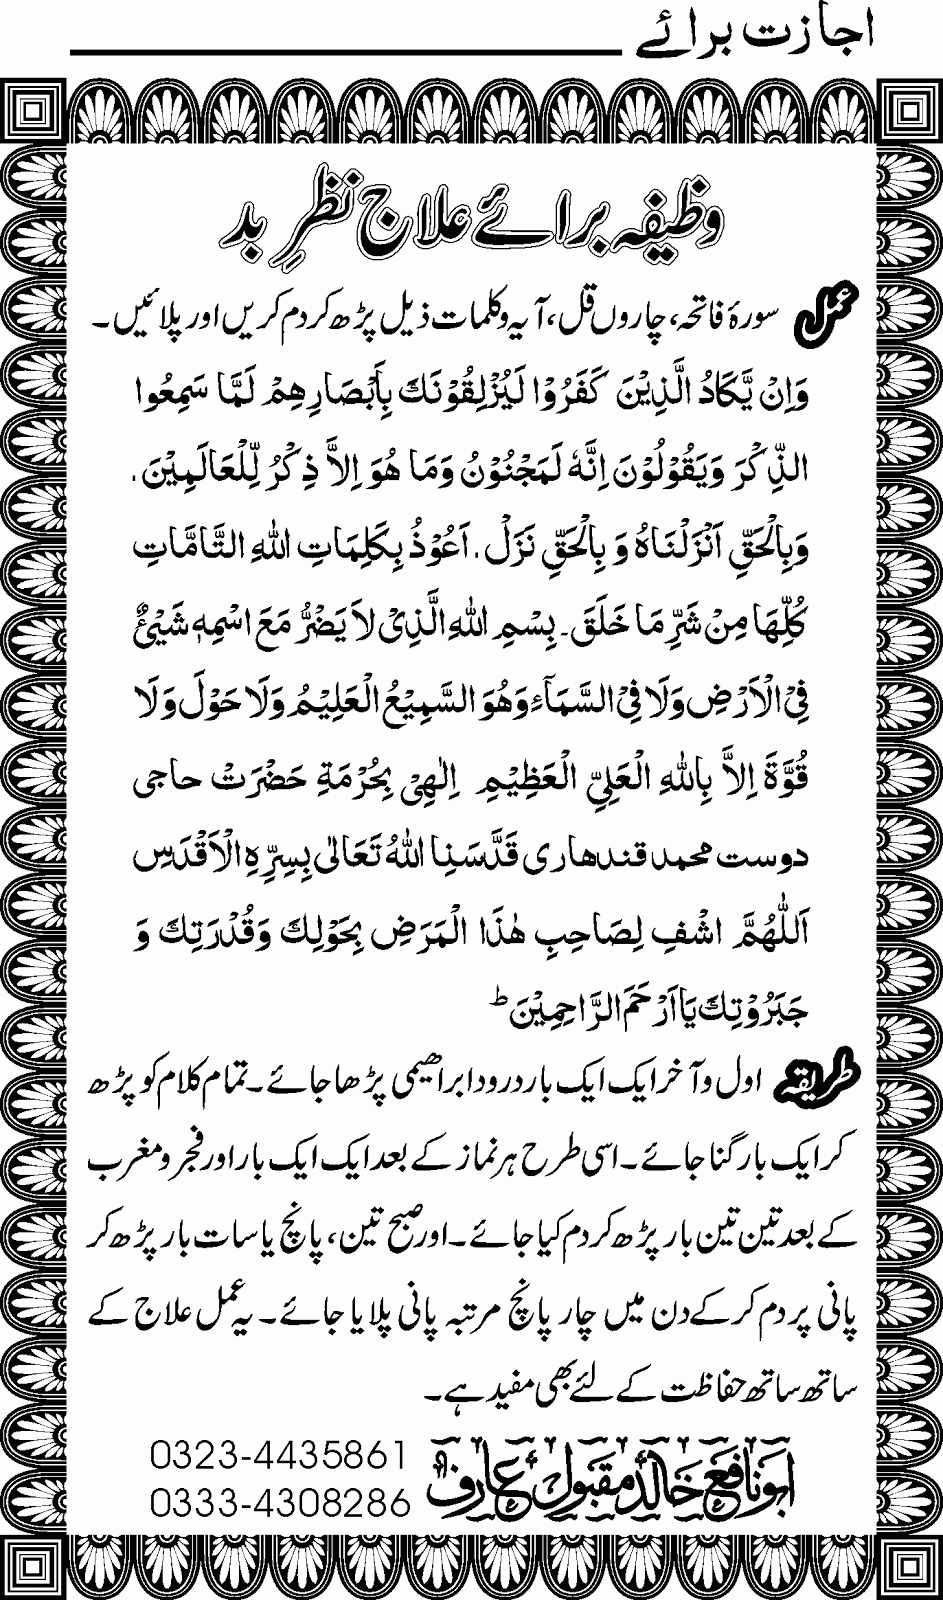 اجازت برائے
وظیفہ برائے علاج نظرِ بد
عمل سورۂ فاتحہ، چاروں قل، آیہ و کلمات ذیل پڑھ کر دم کریں اور پلائیں۔
وَاِنْ يَّكَادُ الَّذِيْنَ كَفَرُوْا لَيُزْلِقُوْنَكَ بِاَبْصَارِهِمْ لَمَّا سَمِعُوا
الذِّكْرَ وَيَقُوْلُوْنَ اِنَّهٗ لَمَجْنُوْنُ وَمَا هُوَ اِلاَّ ذِكْرُ لِّلْعَالَمِيْنَ.
وَبِالْحَقِّ اَنْزَلْنَاهُ وَ بِالْحَقِّ نَزَلْ. اَعُوْذُ بِكَلِمَاتِ اللهِ التَّامَّاتِ
كُلِّهَا مِنْ شَرِّ مَا خَلَقَ۔ بِسْمِ اللهِ الَّذِىْ لاَ يَضُرُّ مَعَ اسْمِهٖ شَيْئٌ
فِىْ الْاَرْضِ وَلَا فِىْ السَّمَآءِ وَهُوَ السَّمِيْعُ الْعَلِيْمُ وَلَا حَوْلَ وَلَا
قُوَّةَ اِلاَّ بِاللهِ الْعَلِىِّ الْعَظِيْمِ اِلٰهِىْ بِحُرْمَةِ حَضْرَتْ حاجی
دوست محمد قندھاری قَدَّسَنِا اللهُ تَعَالٰی بِسِرِّهِ الْاَقْدَسِ
اَللّٰهُمَّ اشْفِ لِصَاحِبِ هٰذَا الْمَرَضِ بِحَوْلِكَ وَقُدْرَتِكَ وَ
جَبَرُوْتِكَ يَا اَرْحَمَ الرَّاحِمِيْنَ ط
طریقہ اول و آخر ایک ایک بار درود ابراھیمی پڑھا جائے۔ تمام کلام کو پڑھ
کر ایک بار گنا جائے۔ اسی طرح ہر نماز کے بعد ایک ایک بار اور فجر و مغرب
کے بعد تین تین بار پڑھ کر دم کیا جائے۔ اور صبح تین، پانچ یا سات بار پڑھ کر
پانی پر دم کر کے دن میں چار پانچ مرتبہ پانی پلایا جائے۔ یہ عمل علاج کے
ساتھ ساتھ حفاظت کے لئے بھی مفید ہے۔
ابونافع خالد مقبول عارف
0323-4435861
0333-4308286